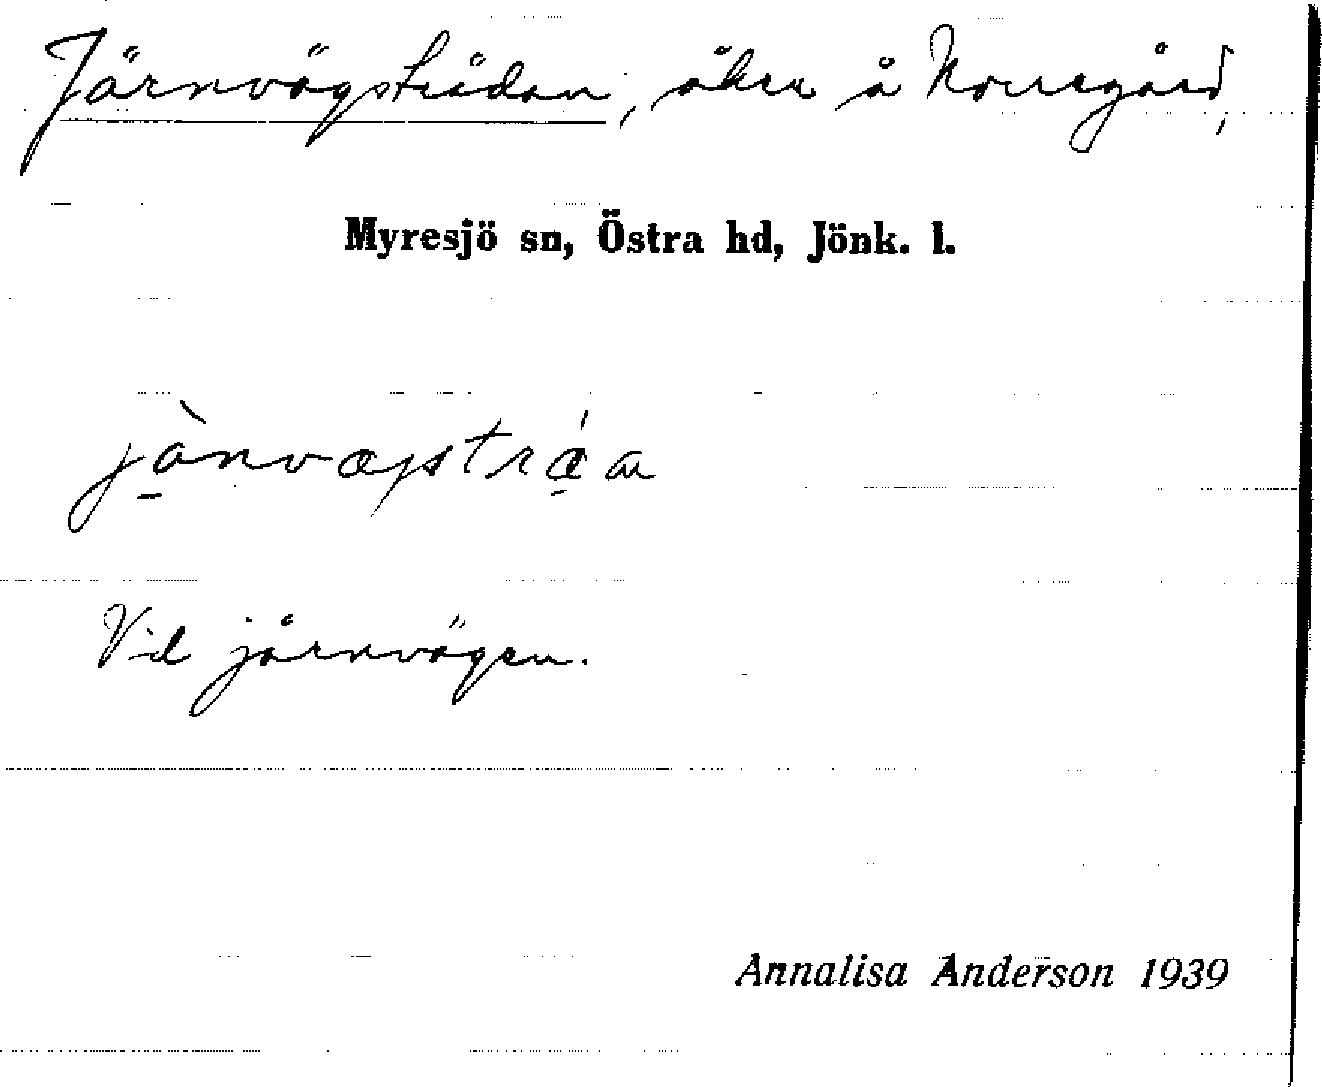 Järnvägsträdan, åker å Norregård,
Myresjö sn, Östra hd, Jönk. l.
Vid järnvägen.
Annalisa Anderson 1939